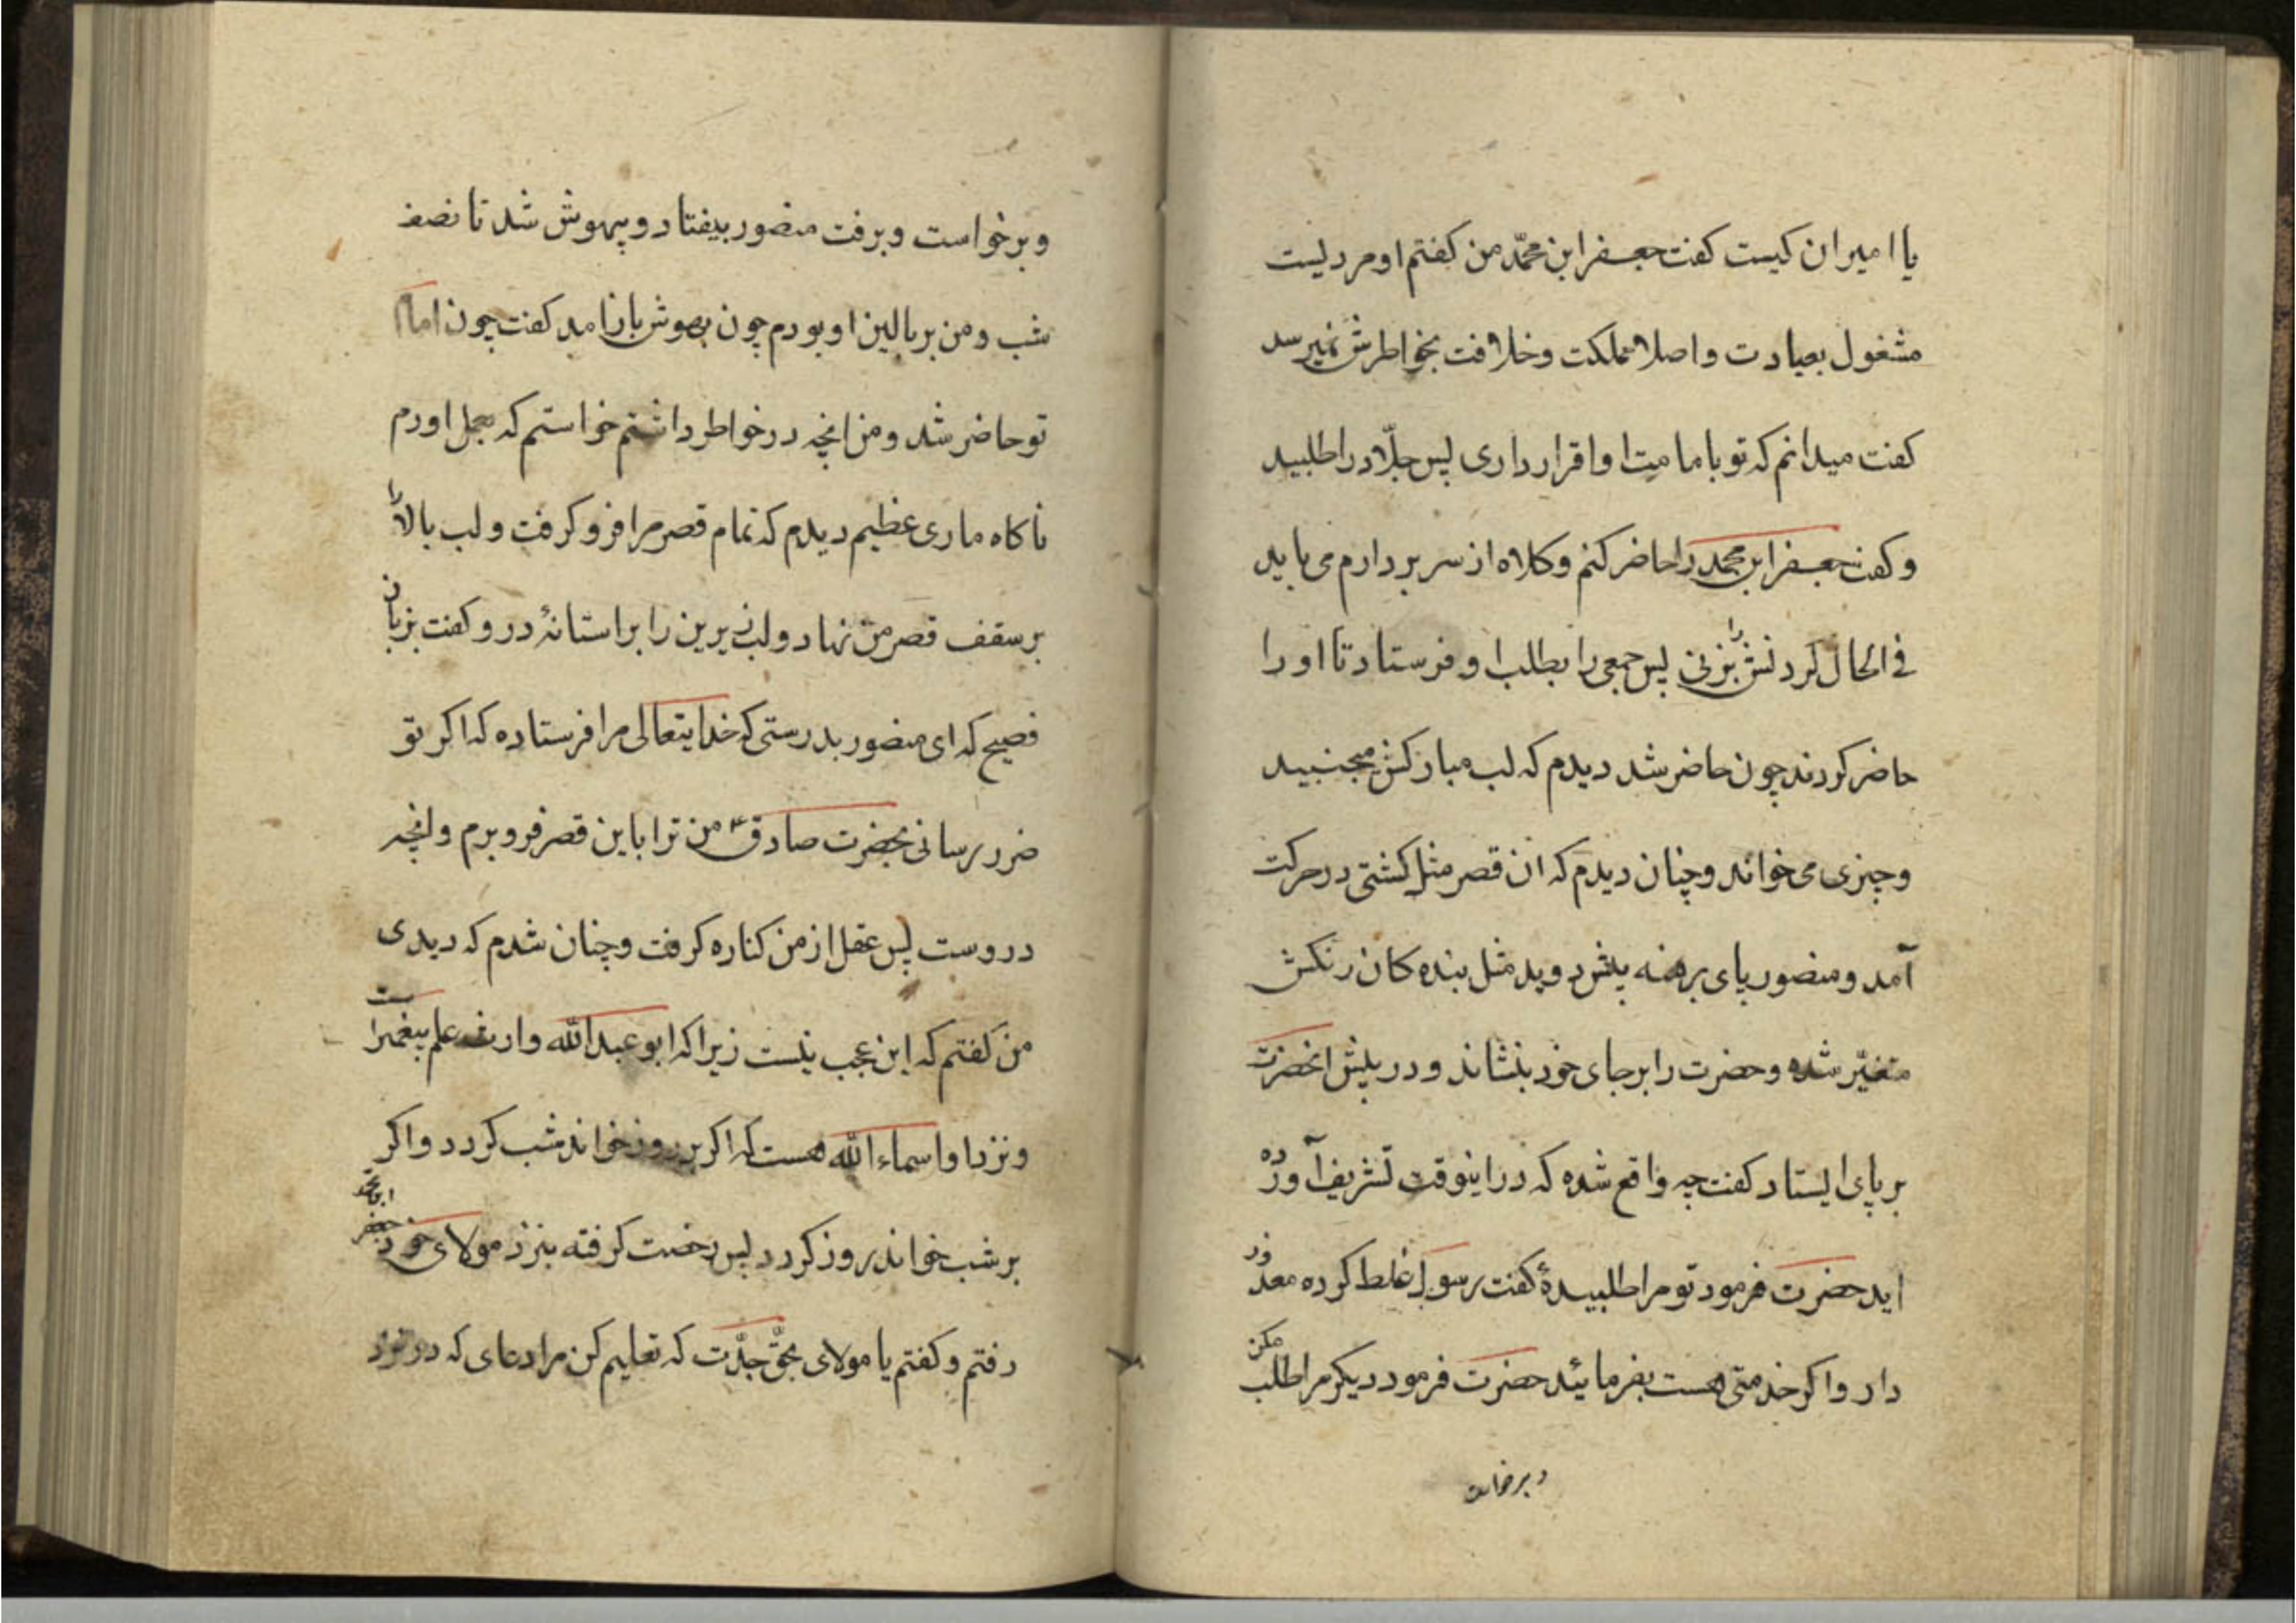 یا امیر ان کیست کفت جعفر ابن محمّد من کفتم او مردیست
مشغول بعبادت و اصلا مملکت و خلافت بخواطرش نمیرسد
کفت میدانم که تو بامامت او اقرار داری پس جلّاد را طلبید
و کفت جعفر ابن محمد را حاضر کنم و کلاه از سر بردارم می باید
فی الحال کردنش را بزنی پس جمعی را بطلب او فرستاد تا او را
حاضر کردند چون حاضر شد دیدم که لب مبارکش میجنبید
و چیزی می خواند و چنان دیدم که ان قصر مثل کشتی در حرکت
آمد و منصور پای برهنه پیش دوید مثل بنده کان رنکش
متغیّر شده و حضرت را بر جای خود بنشاند و در پیش انحضرت
بر پای ایستاد کفت چه واقع شده که در اینوقت تشریف آورده
اید حضرت فرمود تو مرا طلبیدهٔ کفت رسول غلط کرده معذور
دار و اکر خدمتی هست بفرمائید حضرت فرمود دیکر مرا طلب مکن
و برخواست
و برخواست و برفت منصور بیفتاد و بیهوش شد تا نصف
شب و من بر بالین او بودم چون بهوش باز امد کفت چون امام
تو حاضر شد و من انچه در خواطر داشتم خواستم که بجل اورم
ناکاه ماری عظیم دیدم که تمام قصر مرا فرو کرفت و لب بالا را
بر سقف قصر من نهاد و لب زیرین را بر استانهٔ در و کفت بزبان
فصیح که ای منصور بدرستی که خدایتعالی مرا فرستاده که اکر تو
ضرر رسانی بحضرت صادق ع من ترا باین قصر فرو برم و انچه
در وست پس عقل از من کناره کرفت و چنان شدم که دیدی
من کفتم که این عجب نیست زیرا که ابو عبدالله وارث علم پیغمبر است
و نزد او اسماء الله هست که اکر بر روز خواند شب کردد و اکر
بر شب خواند روز کردد پس رخصت کرفته بنزد مولای خود جعفر ابن محمد
رفتم و کفتم یا مولای بحق جدّت که تعلیم کن مرا دعای که در نزد